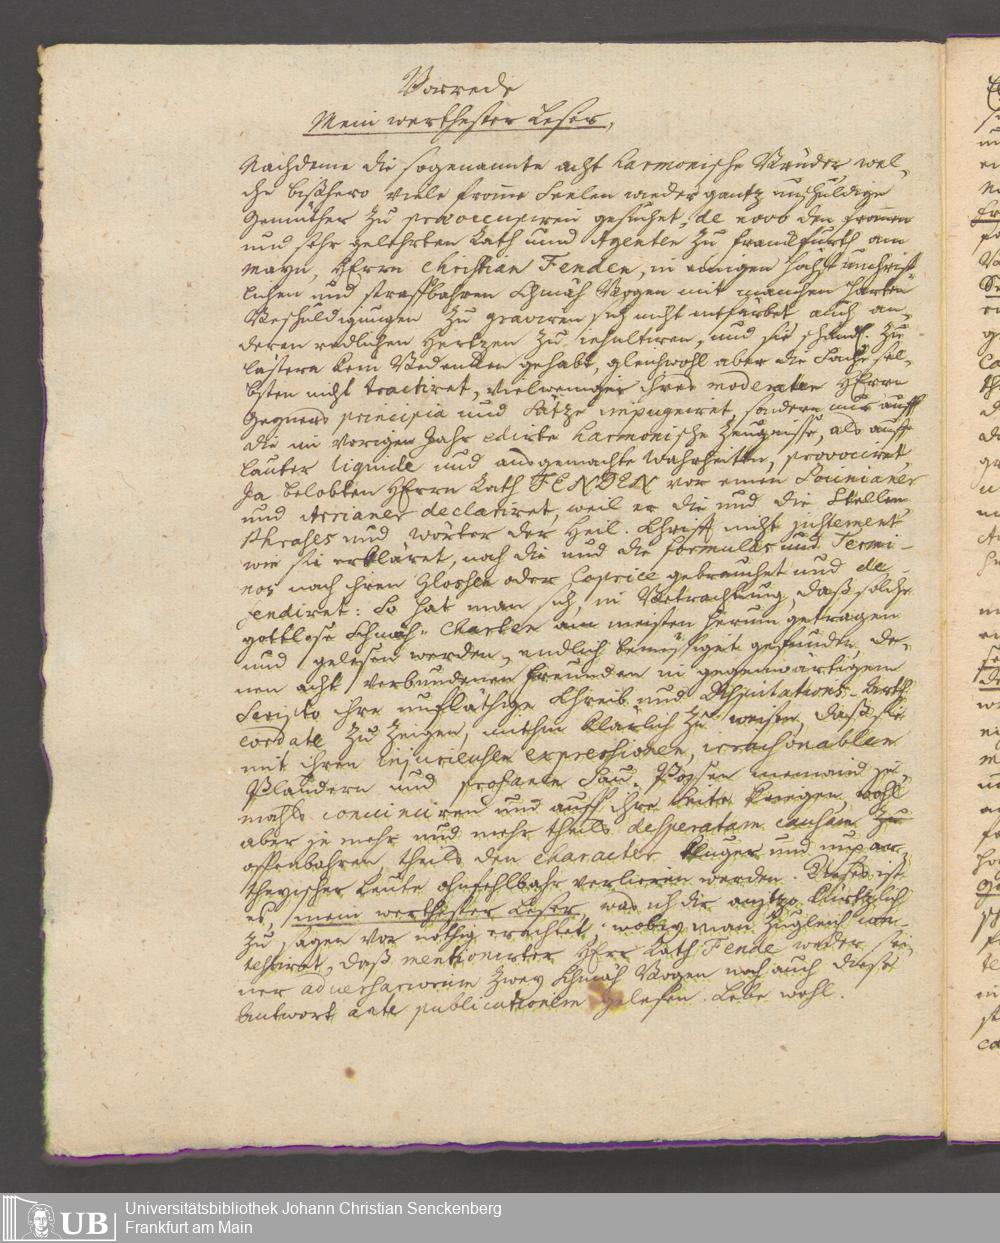 Vorrede
Mein werthester Leser,
Nachdeme die sogenannte acht harmonische Brüder wel-
che bißhero viele from̄e Seelen wieder gantz unschuldige
Gemüther zu præoccupiren gesuchet, de novo den from̄en
und sehr gelehrten Rath und Agenten zu Franckfurth am
Mayn, HErrn Christian Fenden, in einigen höchst unchrist-
lichen und straffbahren Schmäh Bogen mit manchen harten
Beschuldigungen zu graviren sich nicht entfärbet auch an-
deren redlichen Hertzen zu insultiren, und sie schändl. zu
lästern kein Bedencken gehabt, gleichwohl aber die Sache sel-
bsten nicht tractiret, vielweniger ihres moderaten HErrn
Gegners principia und Sätze impugniret, sondern nur auff
die im vorigen Jahr edirte harmonische Zeugnisse, als auff
lauter liquide und ausgemachte Wahrheiten, provociret,
Ja belobten HErrn Rath FENDEN vor einen Socinianer
und Arrianer declariret, weil er die und die Stellen
Phrases und Wörter der Heil. Schrifft nicht justement
wie sie erkläret, noch die und die formulas und Termi-
nos nach ihren Glossen oder Caprice gebrauchet und de-
fendiret: So hat man sich, in Betrachtung, daß solche
gottlose Schmäh-Charten am meisten herum getragen
und gelesen werden, endlich bemüssiget gefunden, de-
nen acht verbundenen Freunden in gegenwärtigem
Scripto ihre unfläthige Schreib und Disputations-Arth
cordate zu zeigen, mithin klärlich zu weisen, daß sie
mit ihren injurieusen expressionen, irraisonablen
Plaudern und profanen Sau-Possen niemand je-
mahls convinciren und auff ihre Seite kriegen, wohl
aber je mehr und mehr theils desperatam causam zu
offenbahren theils den character kluger und unpar-
theyischer Leute ohnfehlbahr verlieren werden. Dieses ist
es, mein werthester Leser, was ich dir anjetzo kürtzlich
zu sagen vor nöthig erachtet; wobey man zugleich con-
testiret, daß mentionirter HErr Rath Fende weder sei-
ner adversariorum zwey Schmäh Bogen noch auch diese
Antwort ante publicationem gelesen. Lebe wohl.
UB
Universitätsbibliothek Johann Christian Senckenberg
Frankfurt am Main